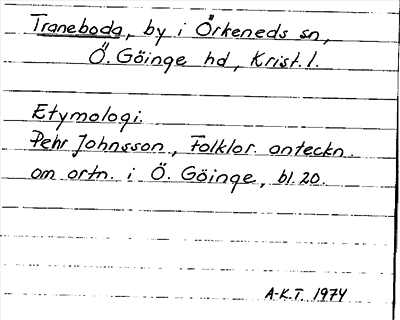 Traneboda, by i Örkeneds sn,
Ö. Göinge hd, Krist. l.
Etymologi.
Pehr Johnsson, Folklor. anteckn.
om ortn. i Ö. Göinge, bl. 20.
A-K.T. 1974